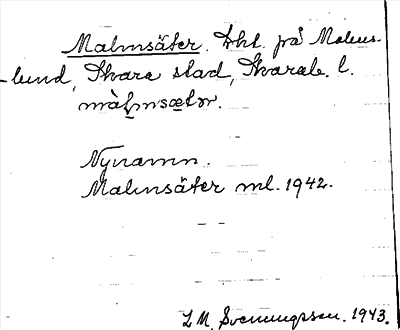 Malmsäter. Lht. på Malms-
lund, Skara stad, Skarab. l.
màḷmsætər.
Nynamn.
Malmsäter ml. 1942.
L M. Svenungsson. 1943.